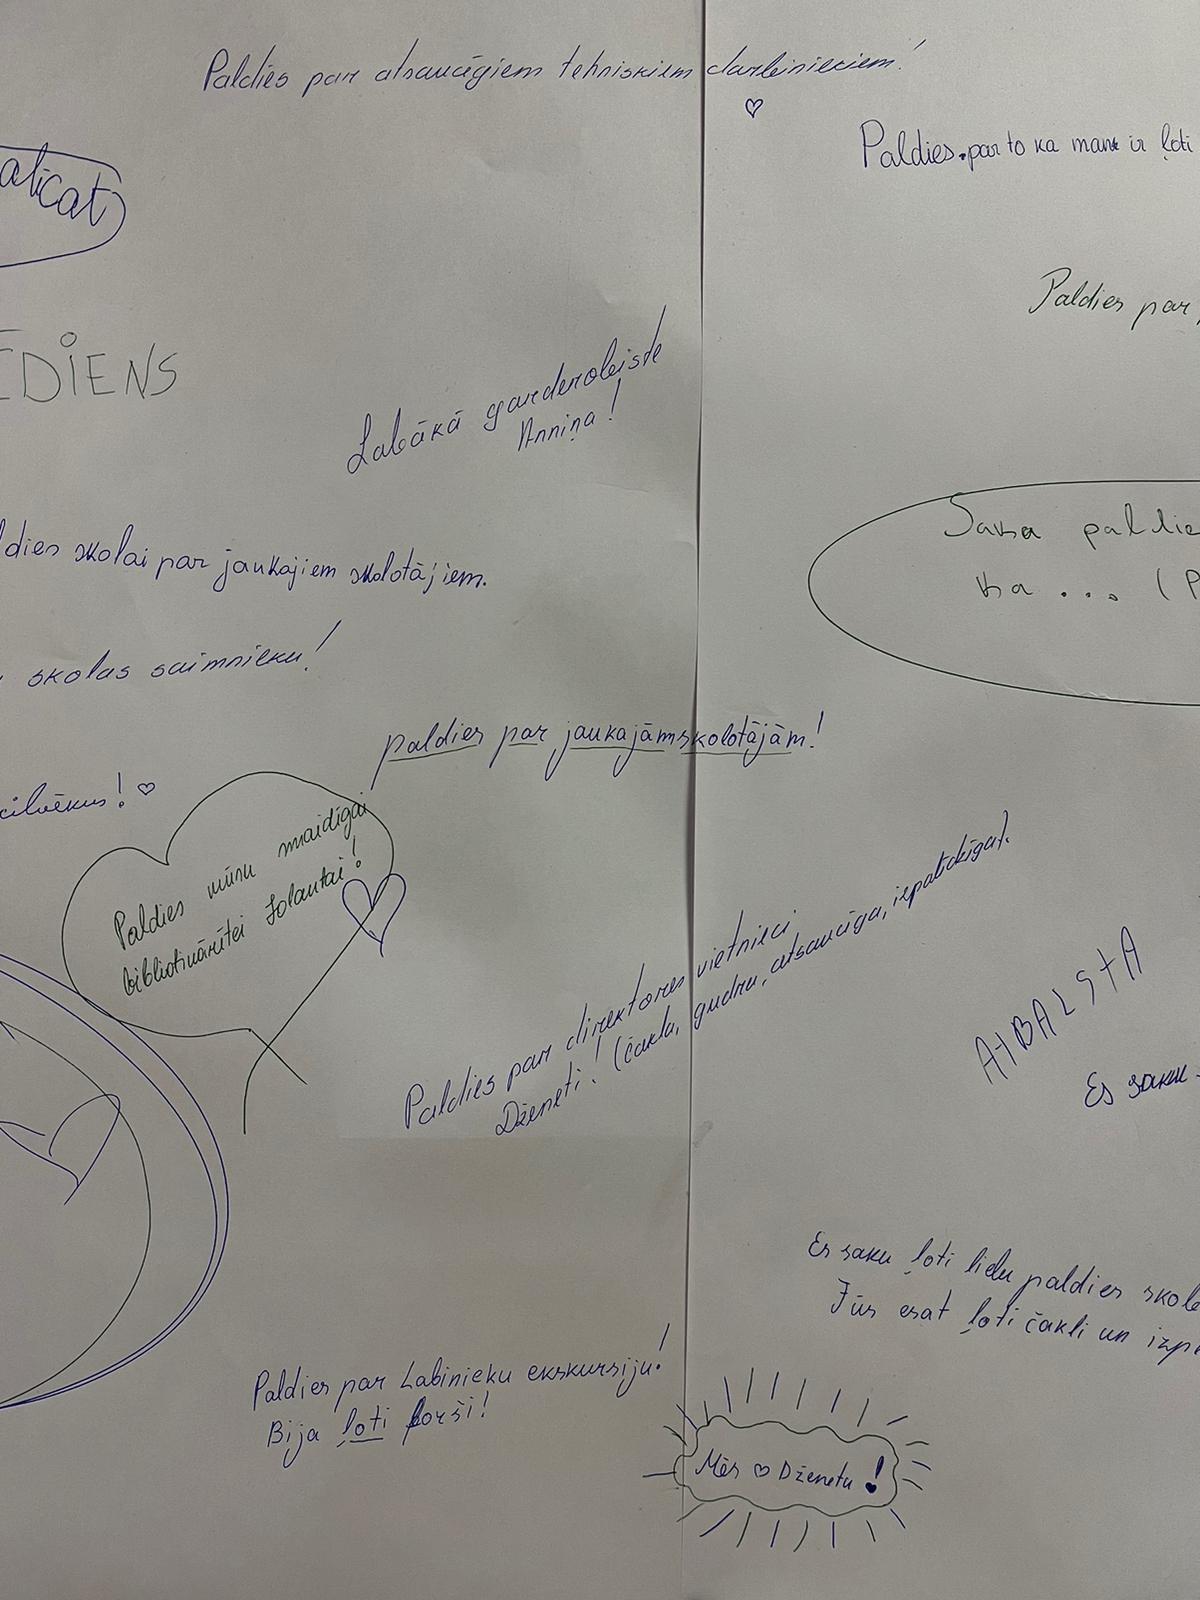 Paldies par atsaucīgiem tehniskiem darbiniekiem!
Paldies par to ka man ir ļoti
alicat
Paldies par
ĒDIENS
Labākā garderobiste
Anniņa!
Saka paldie
ka ... (P
ldies skolai par jaukajiem skolotājiem.
skolas saimnieku!
paldies par jaukajām skolotājām!
cilvēkus!
Paldies mūsu smaidīgai
bibliotikārītei Jolantai!
Paldies par direktores vietnieci
Dženeti! (čakla, gudra, atsaucīga, iepatikīga).
AtBALStA
Es saku
Es saku ļoti lielu paldies skole
Jūs esat ļoti čakli un izpa
Paldies par Labinieku ekskursiju!
Bija ļoti forši!
Mēs ♡ Dženetu!